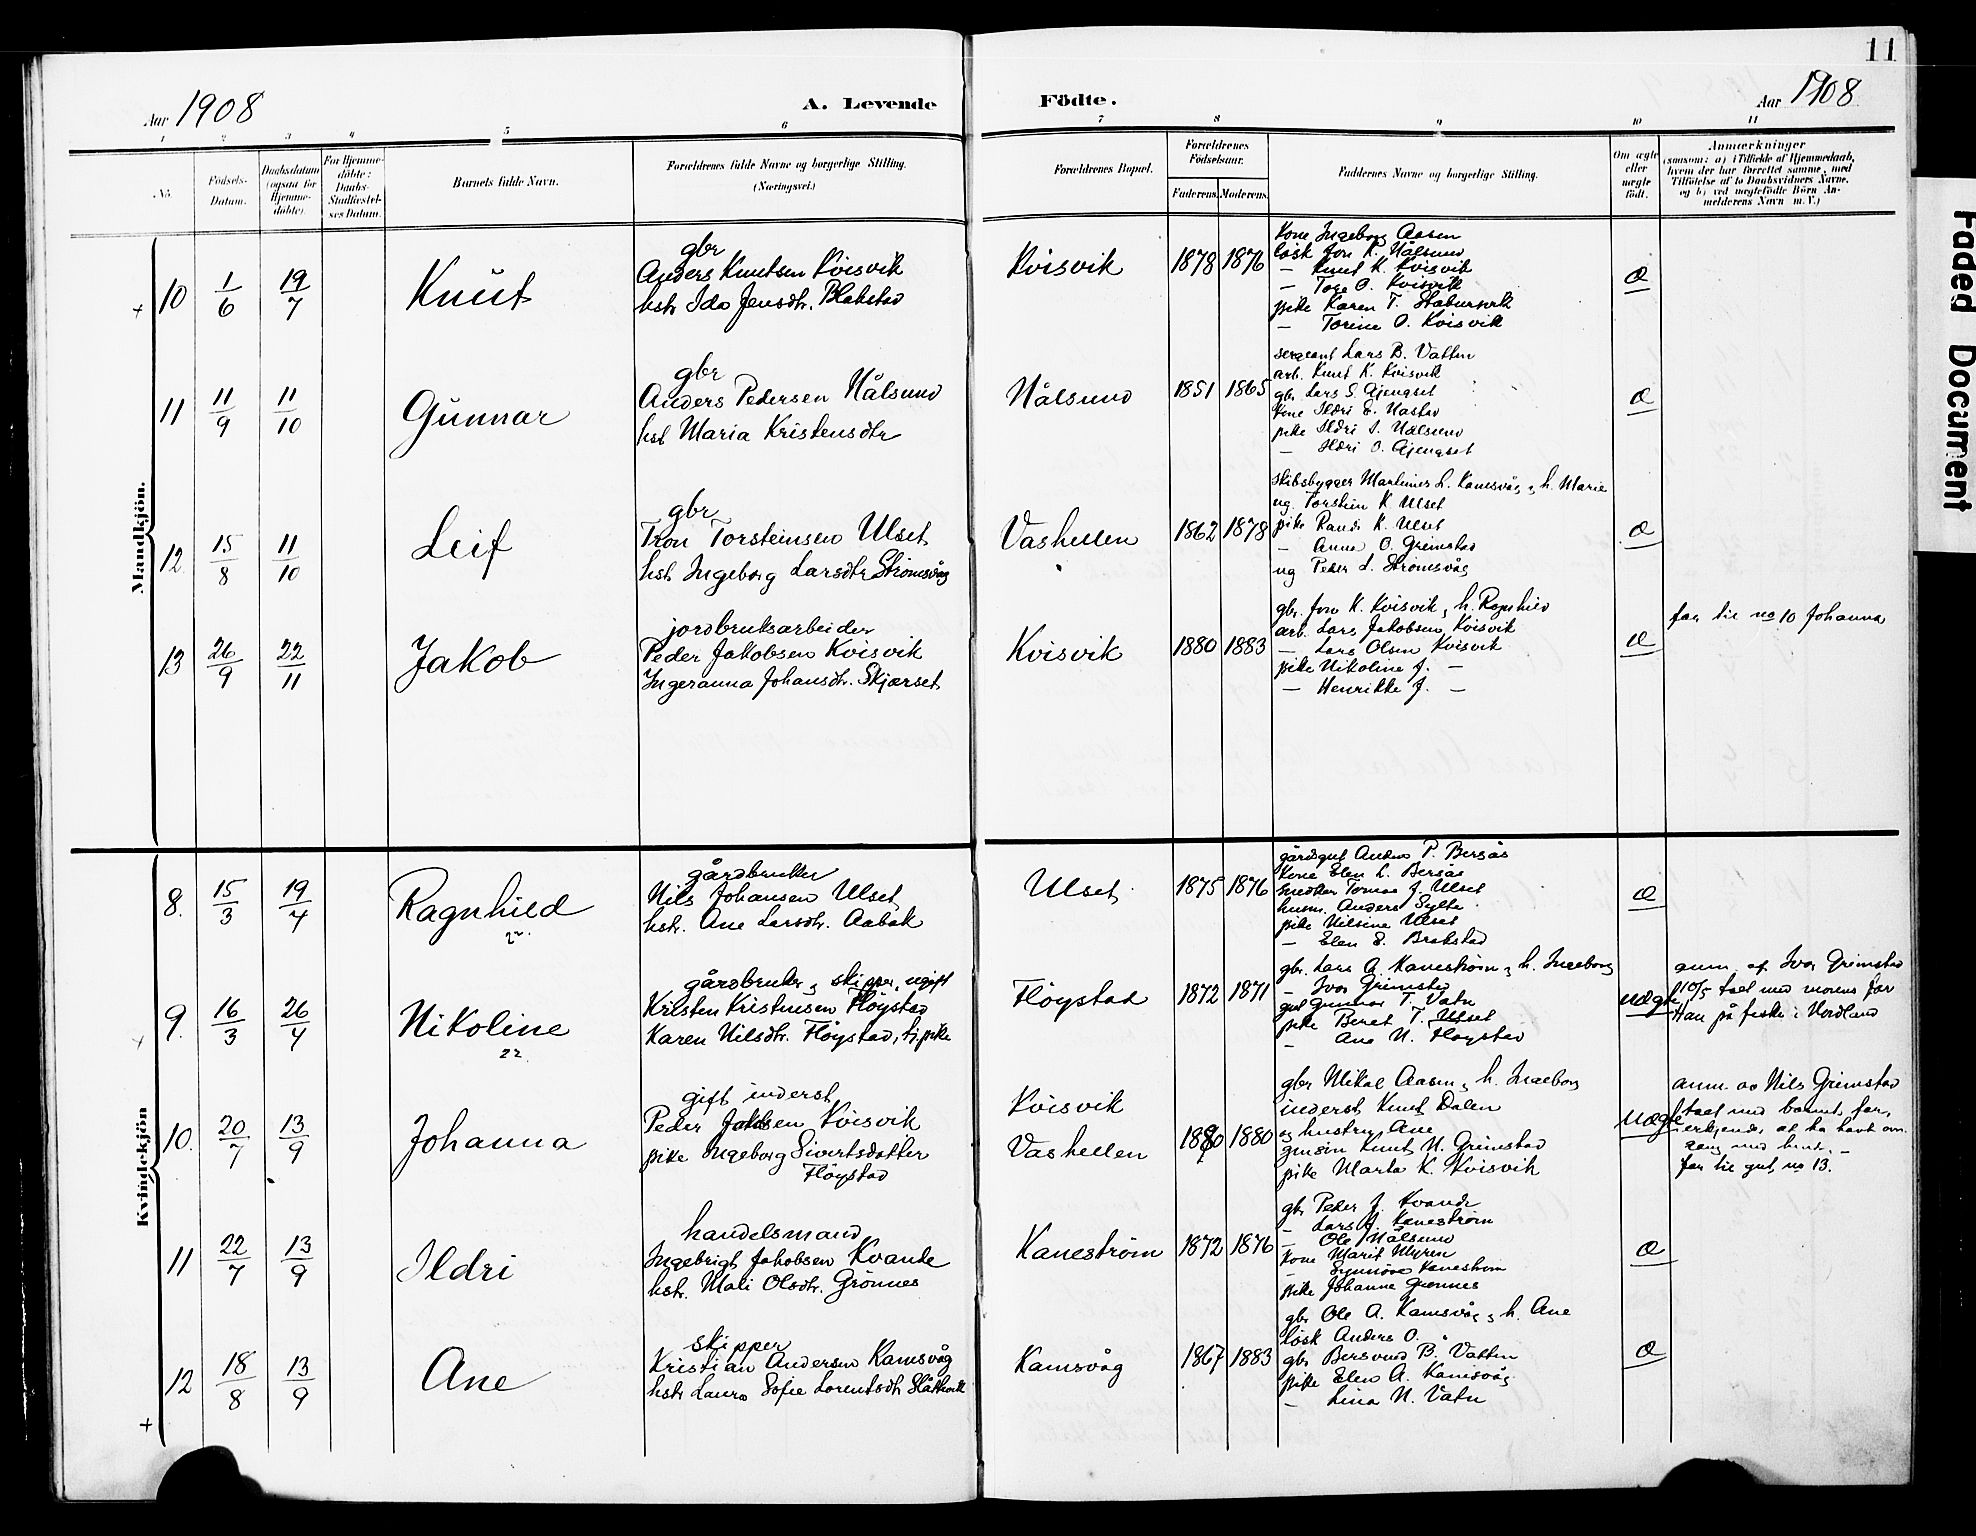 11
Aar 1908
A. Levende Födte.
Aar 1908
1 2 3 4 5 6 7 8 9 10 11
No. Födsels-Datum. Daabsdatum (ogsaa for Hjemme-döbte). For Hjemme-döbte: Daabs-Stadfæstel-ses Datum. Barnets fulde Navn. Forældrenes fulde Navne og borgerlige Stilling. (Næringsvei.) Forældrenes Bopæl. Forældrenes Födselsaar. Faderens. Moderens. Faddernes Navne og borgerlige Stilling. Om ægte eller uægte födt. Anmærkninger (saasom: a) i Tilfælde af Hjemmedaab, hvem der har forrettet samme, med Tilföielse af to Daabsvidners Navne, og b) ved uægtefödte Börn An-melderens Navn m. V.)
Mandkjön.
10 1/6 19/7 Knut
gbr
Anders Knutsen Kvisvik
hstr Ida Jensdtr. Blakstad
Kvisvik 1878 1876
Kone Ingeborg Aasen
løsk Jon K. Nålsund
— Knut K. Kvisvik
— Tore O. Kvisvik
pike Karen T. Stabursvik
— Torine O. Kvisvik
æ
11 11/9 11/10 Gunnar
gbr
Anders Pedersen Nålsund
hst Maria Kristensdtr
Nålsund 1851 1865
sergeant Lars B. Vatten
arb. Knut K. Kvisvik
gbr. Lars S. Gjengset
Kone Ildri E. Nastad
pike Ildri I. Nålsund
— Ildri O. Gjengset
æ
12. 15/8 11/10 Leif
gbr
Tron Torsteinsen Ulset
hst. Ingeborg Larsdtr Strømsvåg
Vashellen 1862 1878
Skibsbygger Martinus L. Kamsvåg, h. Marie
ug. Torstein K. Ulset
pike Randi K. Ulset
— Anna O. Grimstad
ug Peder L. Strømsvåg
æ
13 26/9 22/11 Jakob
jordbruksarbeider
Peder Jakobsen Kvisvik
Ingeranna Johansdtr. Skjærset
Kvisvik 1880 1883
gbr. Jon K. Kvisvik, h. Ragnhild
arb. Lars Jakobsen Kvisvik
— Lars Olsen Kvisvik
pike Nikoline J. —
— Henrikke J. —
æ
far til no 10 Johanna
Kvindekjön
8. 15/3 19/4 Ragnhild
22.
gårdbruker
Nils Johansen Ulset
hstr. Ane Larsdtr. Aabak
Ulset 1875 1876
gårdsgut Anders P. Bersås
Kone Elen L. Bersås
snedker Tomas J. Ulset
husm. Anders Sylte
pike Nilsine Ulset
— Elen E. Brakstad
æ
9. 16/3 26/4 Nikoline
22
gårdbruker, skipper, ugift
Kristen Kristensen Fløystad
Karen Nilsdtr. Fløystad, tj.pike
Fløystad 1872 1871
gbr. Lars A. Kanestrøm, h. Ingeborg
— Ivar Grimstad
gut Gunnar T. Vatn
pike Beret T. Ulset
— Ane N. Fløystad
uægte
anm. af Ivar Grimstad
10/5 talt med morens far
Han på fiske i Nordland
10. 20/7 13/9 Johanna
gift inderst
Peder Jakobsen Kvisvik
pike Ingeborg Sivertsdatter
Fløystad
Kvisvik
Vashellen 1880 1880
gbr Mikal Aasen, h. Ingeborg
inderst Knut Dalen
og hustru Ane
Knut N. Grimstad
pike Marta K. Kvisvik
uægte
anm. av Nils Grimstad
talt med barnets far,
erkjender at ha havt om
gang med hende. —
far til gut no 13.
11 22/7 13/9 Ildri
handelsmand
Ingebrigt Jakobsen Kvande
hstr. Mali Olsdtr. Grönnes
Kanestrøm 1872 1876
gbr Peder J. Kvande
— Lars J. Kanestrøm
— Ole Nålsund
Kone Marit Myren
— Synnøve Kanestrøm
pike Johanne Grønnes
æ
12 18/8 13/9 Ane
skipper
Kristian Andersen Kamsvåg
hstr Laura Sofie Lorentsdtr Slåttvik
Kamsvåg 1867 1883
gbr Ole A. Kamsvåg, h. Ane
løsk Anders O.
gbr Bersvend B. Vatten
pike Elen A. Kamsvåg
— Lina N. Vatn
æ
Faded Document